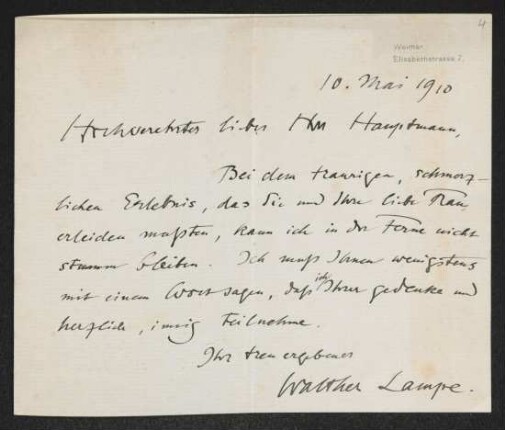 4
Weimar
Elisabethstrasse 7.
10. Mai 1910
Hochverehrter lieber Herr Hauptmann,
Bei dem traurigen, schmerz-
lichen Erlebnis, das Sie und Ihre liebe Frau
erleiden mußten, kann ich in der Ferne nicht
stumm bleiben. Ich muß Ihnen wenigstens
mit einem Wort sagen, daß ich Ihrer gedenke und
herzlich, innig teilnehme.
Ihr treu ergebener
Walther Lampe.